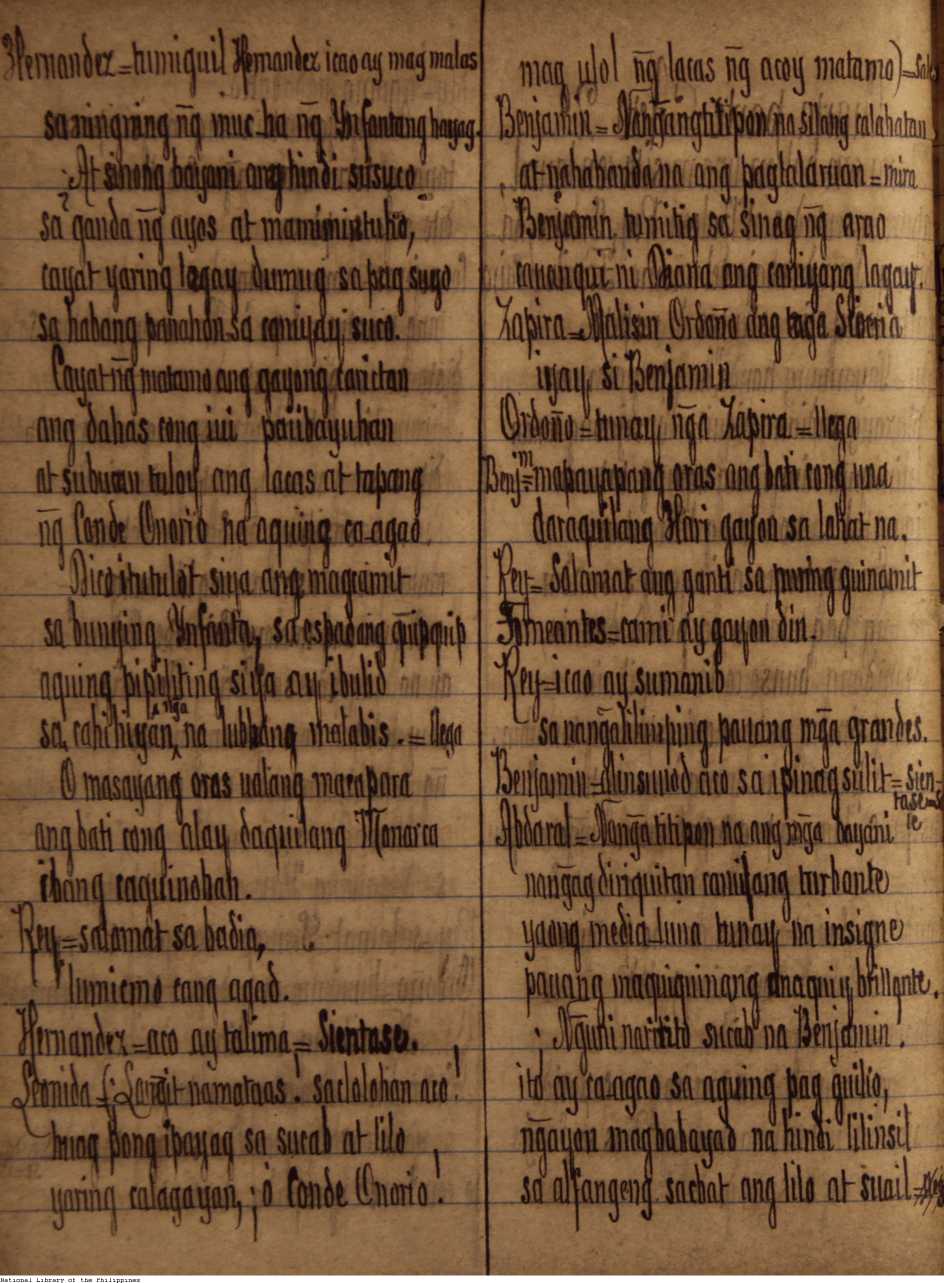 Hernandez = tumiguil Hernandez icao ay mag malas
sa ningning n̄g muc-ha n̄g Ynfantang hayag.
¿At sinong baiyani ang hindi susuco
sa ganda n̄g ayos at mamimintuho,
cayat yaring lagay dumug sa pag suyo
sa habang panahon sa caniyay, suco.
Cayat n̄g matamo ang gayong carictan
ang dahas cong iui paiibayuhan
at subucan tuloy ang lacas at tapang
n̄g Conde Onorio na aquing ca-agao
Dico itutulot siya ang magcamit
sa bunying Ynfanta, sa espadang quipquip
aquing pipiliting siya ay ibulid
sa cahihiyan nga na lubhang matabis. = llega
O masayang oras ualang macapara
ang bati cong alay daquilang Monarca
ibang caguinohan.
Rey = salamat sa badia,
lumicmo cang agad.
Hernandez = aco ay talima = sientase.
Leonida (¡Lan̄git na mataas! saclolohan aco!
huag pong ipayag sa sucab at lilo
yaring calagayan, ¡ó Conde Onorio!
mag ulol n̄g lacas n̄g acoy matamo) = sale
Benjamin = Nan̄gan̄gtitipon na silang calahatan
at nahahanda na ang pagtalaruan = mira
Benjamin tumitig sa sinag n̄g arao
cauan̄gui ni Diana ang caniyang lagay.
Zapira = Malisin Ordoño ang taga Siberia
iyay, si Benjamin
Ordoño = tunay, n̄ga Zapira = llega
Benjm = mapayapang oras ang bati cong una
daraquilang Hari gayon sa lahat na.
Rey = Salamat ang ganti sa puring guinamit
Torneantes = cami ay gayon din.
Rey = icao ay sumanib
sa nan̄galilimping pauang mg̃a grandes.
Benjamin = Minsunod aco sa ipinag sulit = sien-
tase = sale
Abdaral = Nan̄gatitipon na ang mg̃a bayani
nan̄gag diriquitan canilang turbante
yaong media-luna tunay, na insigne
pauang maquiquinang anaquiy brillante.
¡N̄guni naririto sucab na Benjamin!
ito ay ca-agao sa aquing pag guilio,
n̄gayon magbabayad na hindi lilinsil
sa alfangeng sacbat ang lilo at suail =
National Library of the Philippines